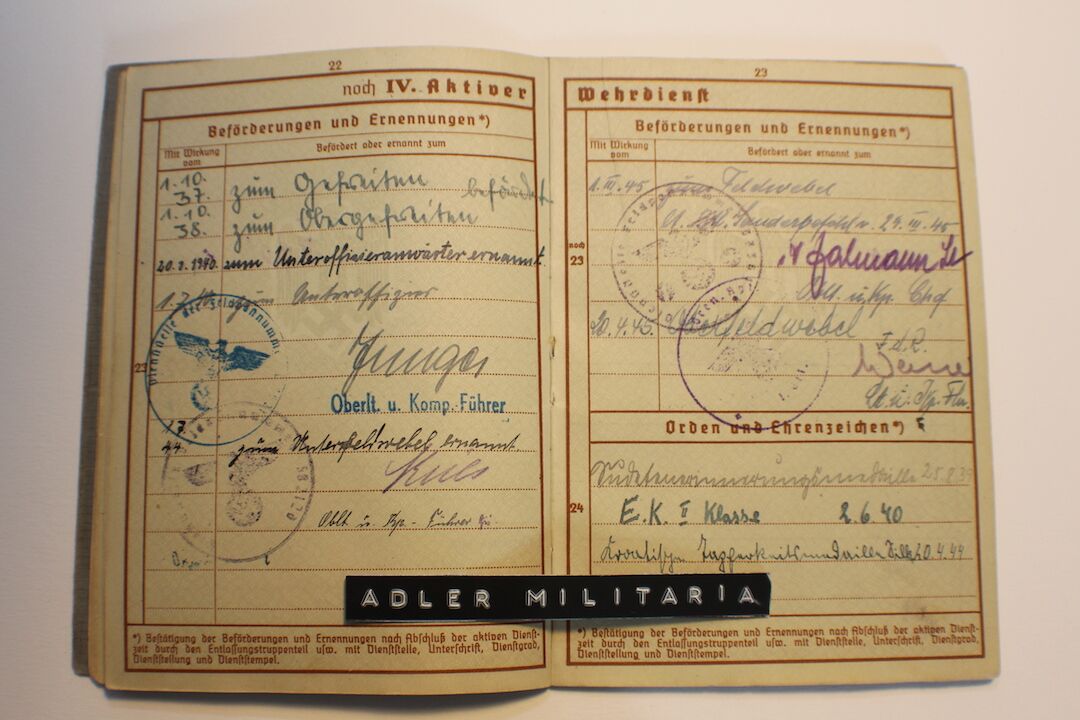 22
noch IV. Aktiver
Beförderungen und Ernennungen*)
Mit Wirkung vom
Befördert oder ernannt zum
1.10. 37. zum Gefreiten befördert
1.10. 38. zum Obergefreiten
zum Unteroffizieranwärter ernannt
zum Unteroffizier
Dienststelle der Feldpostnummer
23
Oberlt. u. Komp. Führer
44 zum Unterfeldwebel ernannt
Oblt u. Kp.-Führer
*) Bestätigung der Beförderungen und Ernennungen nach Abschluß der aktiven Dienst-
zeit durch den Entlassungstruppenteil usw. mit Dienststelle, Unterschrift, Dienstgrad,
Dienststellung und Dienststempel.
23
Wehrdienst
Beförderungen und Ernennungen*)
Mit Wirkung vom
Befördert oder ernannt zum
1.III.45 zum Feldwebel
noch 23
20.4.45 Oberfeldwebel
F.d.R.
Orden und Ehrenzeichen*)
Sudetenerinnerungsmedaille 25.8.39
24
E.K. II Klasse 2.6.40
Kroatische Tapferkeitsmedaille 20.4.44
ADLER MILITARIA
*) Bestätigung der Beförderungen und Ernennungen nach Abschluß der aktiven Dienst-
zeit durch den Entlassungstruppenteil usw. mit Dienststelle, Unterschrift, Dienstgrad,
Dienststellung und Dienststempel.